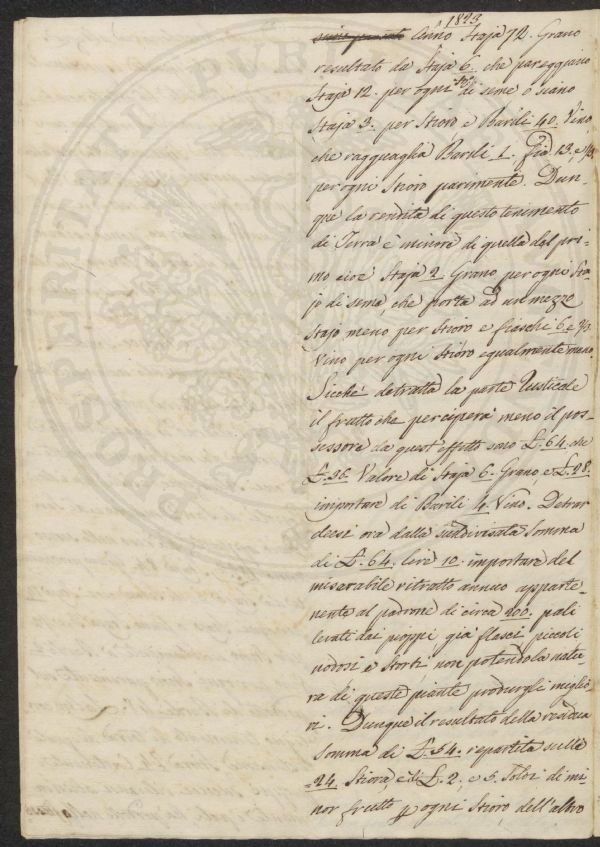 1823
Anno Staja 72. Grano
resultato da Staja 6. che pareggiano
Staja 12. per ogni Sto: di seme o siano
Staja 3. per Stioro, e Barili 40. Vino
che ragguaglia Barili 1. fia. 13. e 1/3
per ogni Stioro parimente. Dun=
que la rendita di questo tenimento
di Terra è minore di quella del pri=
mo cioè Staja 2. Grano per ogni Sta=
jo di seme, che porta ad un mezzo
Stajo meno per Stioro e fiaschi 6. e 2/3.
Vino per ogni Stioro egualmente meno.
Sicchè detratta la parte Rusticale
il frutto che perciperà meno il pos=
sessore da quest'effetto sono £. 64. che
£. 36. Valore di Staja 6. Grano, e £. 28.
importare di Barili 4. Vino. Detrar
deesi ora dalla suddivisata Somma
di £. 64. lire 10. importare del
miserabile ritratto annuo apparte=
nente al padrone di circa 200. pali
levati dai pioppi già flasci, piccoli
nodosi e Storti non potendola natu=
ra di queste piante produrgli miglio=
ri. Dunque il resultato della residua
Somma di £. 54. repartita sulle
24. Stiora, è di £. 2, e 5. Soldi di mi=
nor frutto p ogni Stioro, dell'altro
PROSPERITATI
PUB